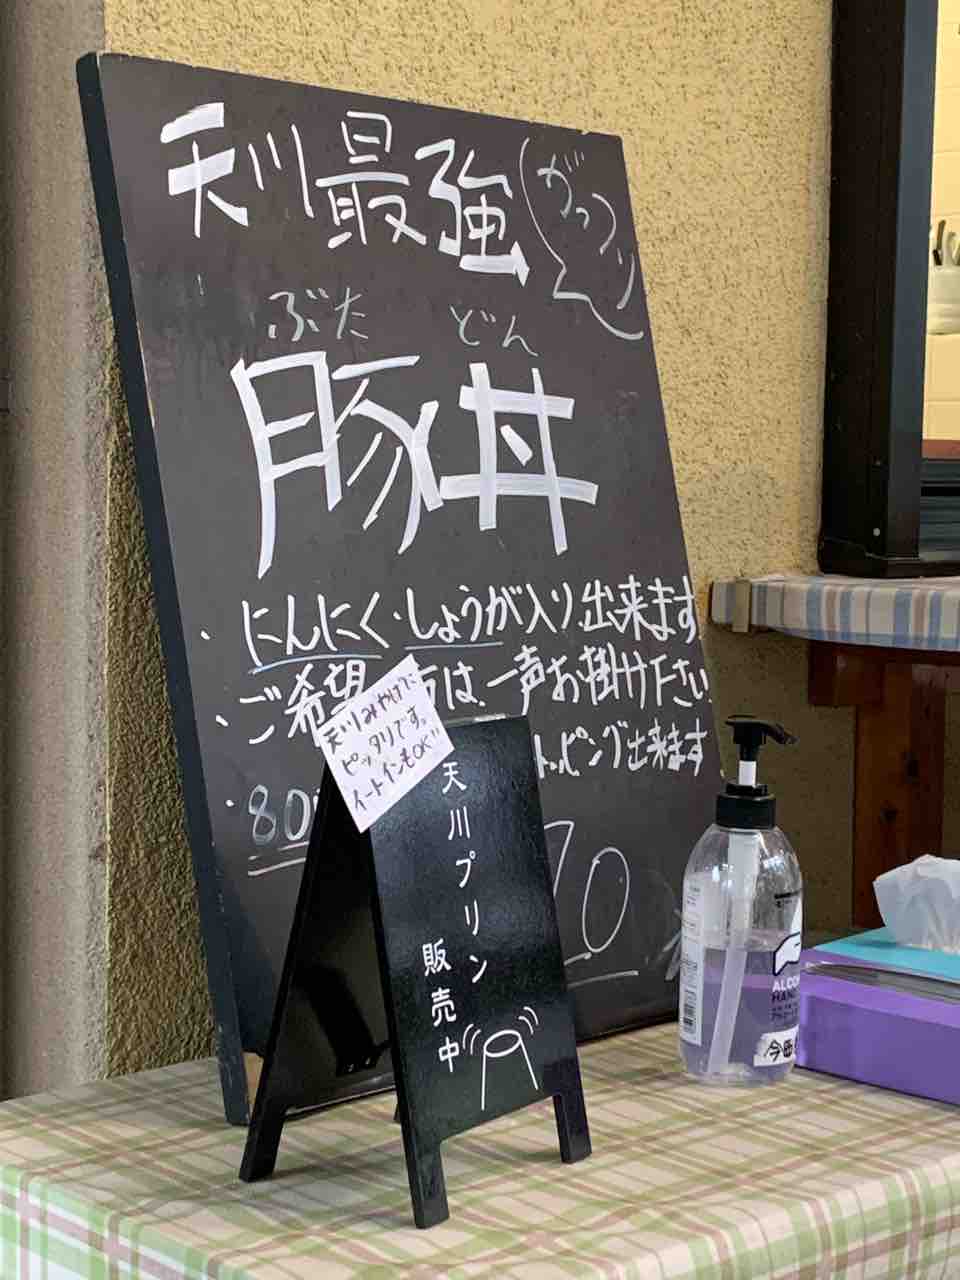 天川最強
がっつり
ぶたどん
豚丼
・にんにく・しょうが入り出来ます
・ご希望 方は一声お掛け下さい
・80
トッピング出来ます
70
天川みやげに
ピッタリです。
イートインもOK!!
天川プリン
販売中
ALCO
HAND
今西